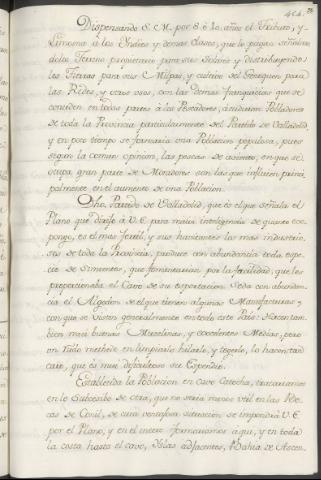 424.
Dispensando S. M. por 8 ó 10 años el Tributo, y
Limosna à los Indios y demas clases, que lo pagan, señalando
doles Terreno proporcionado para sus Solares y distribuyendo
les Tierras para sus Milpas, y cultivo del Henequen para
las Redes, y otros usos, con las demas franquicias que se
conceden en todas partes à los Pobladores, acudirian Pobladores
de toda la Provincia particularmente del Partido de Valladolid
y en poco tiempo se formaria una Poblacion populosa, pues
segun la comun opinion, las pescas de en que se
ocupa gran parte de Moradores son las que influien princi
palmente en el aumento de una Poblacion.
Dho. Partido de Valladolid, que és el que señala el
Plano que dirijo à V. E. para maior inteligencia de quanto ex-
pongo, es el mas fertil, y sus havitantes los mas industrio-
sos de toda la Provincia, produce con abundancia toda espe-
cie de Simientes, que fomentarian por la facilidad, que les
proporcionaba el Cavo de su exportacion. Se da con abundan-
cia el Algodon de el que tienen algunas Manufacturas,
con que se visten generalmente en todo este Pais: Hacen tam-
bien mui buenas y excelentes Medias, pero
un methodo en limpiarlo hilarlo, y tegerlo, lo hacen tan
caro, que és mui dificultoso su Expendio.
Establecida la Poblacion en Cavo Catoche, trataríamos
en lo Subcesibo de otra, que no seria menos util en las Bo-
cas de Conil, de cuia ventajosa situacion se impondrá V. E.
por el Plano, y en el interin formariamos aqui, y en toda
la costa hasta el cavo, Yslas adjacentes, Bahia de Ascen-